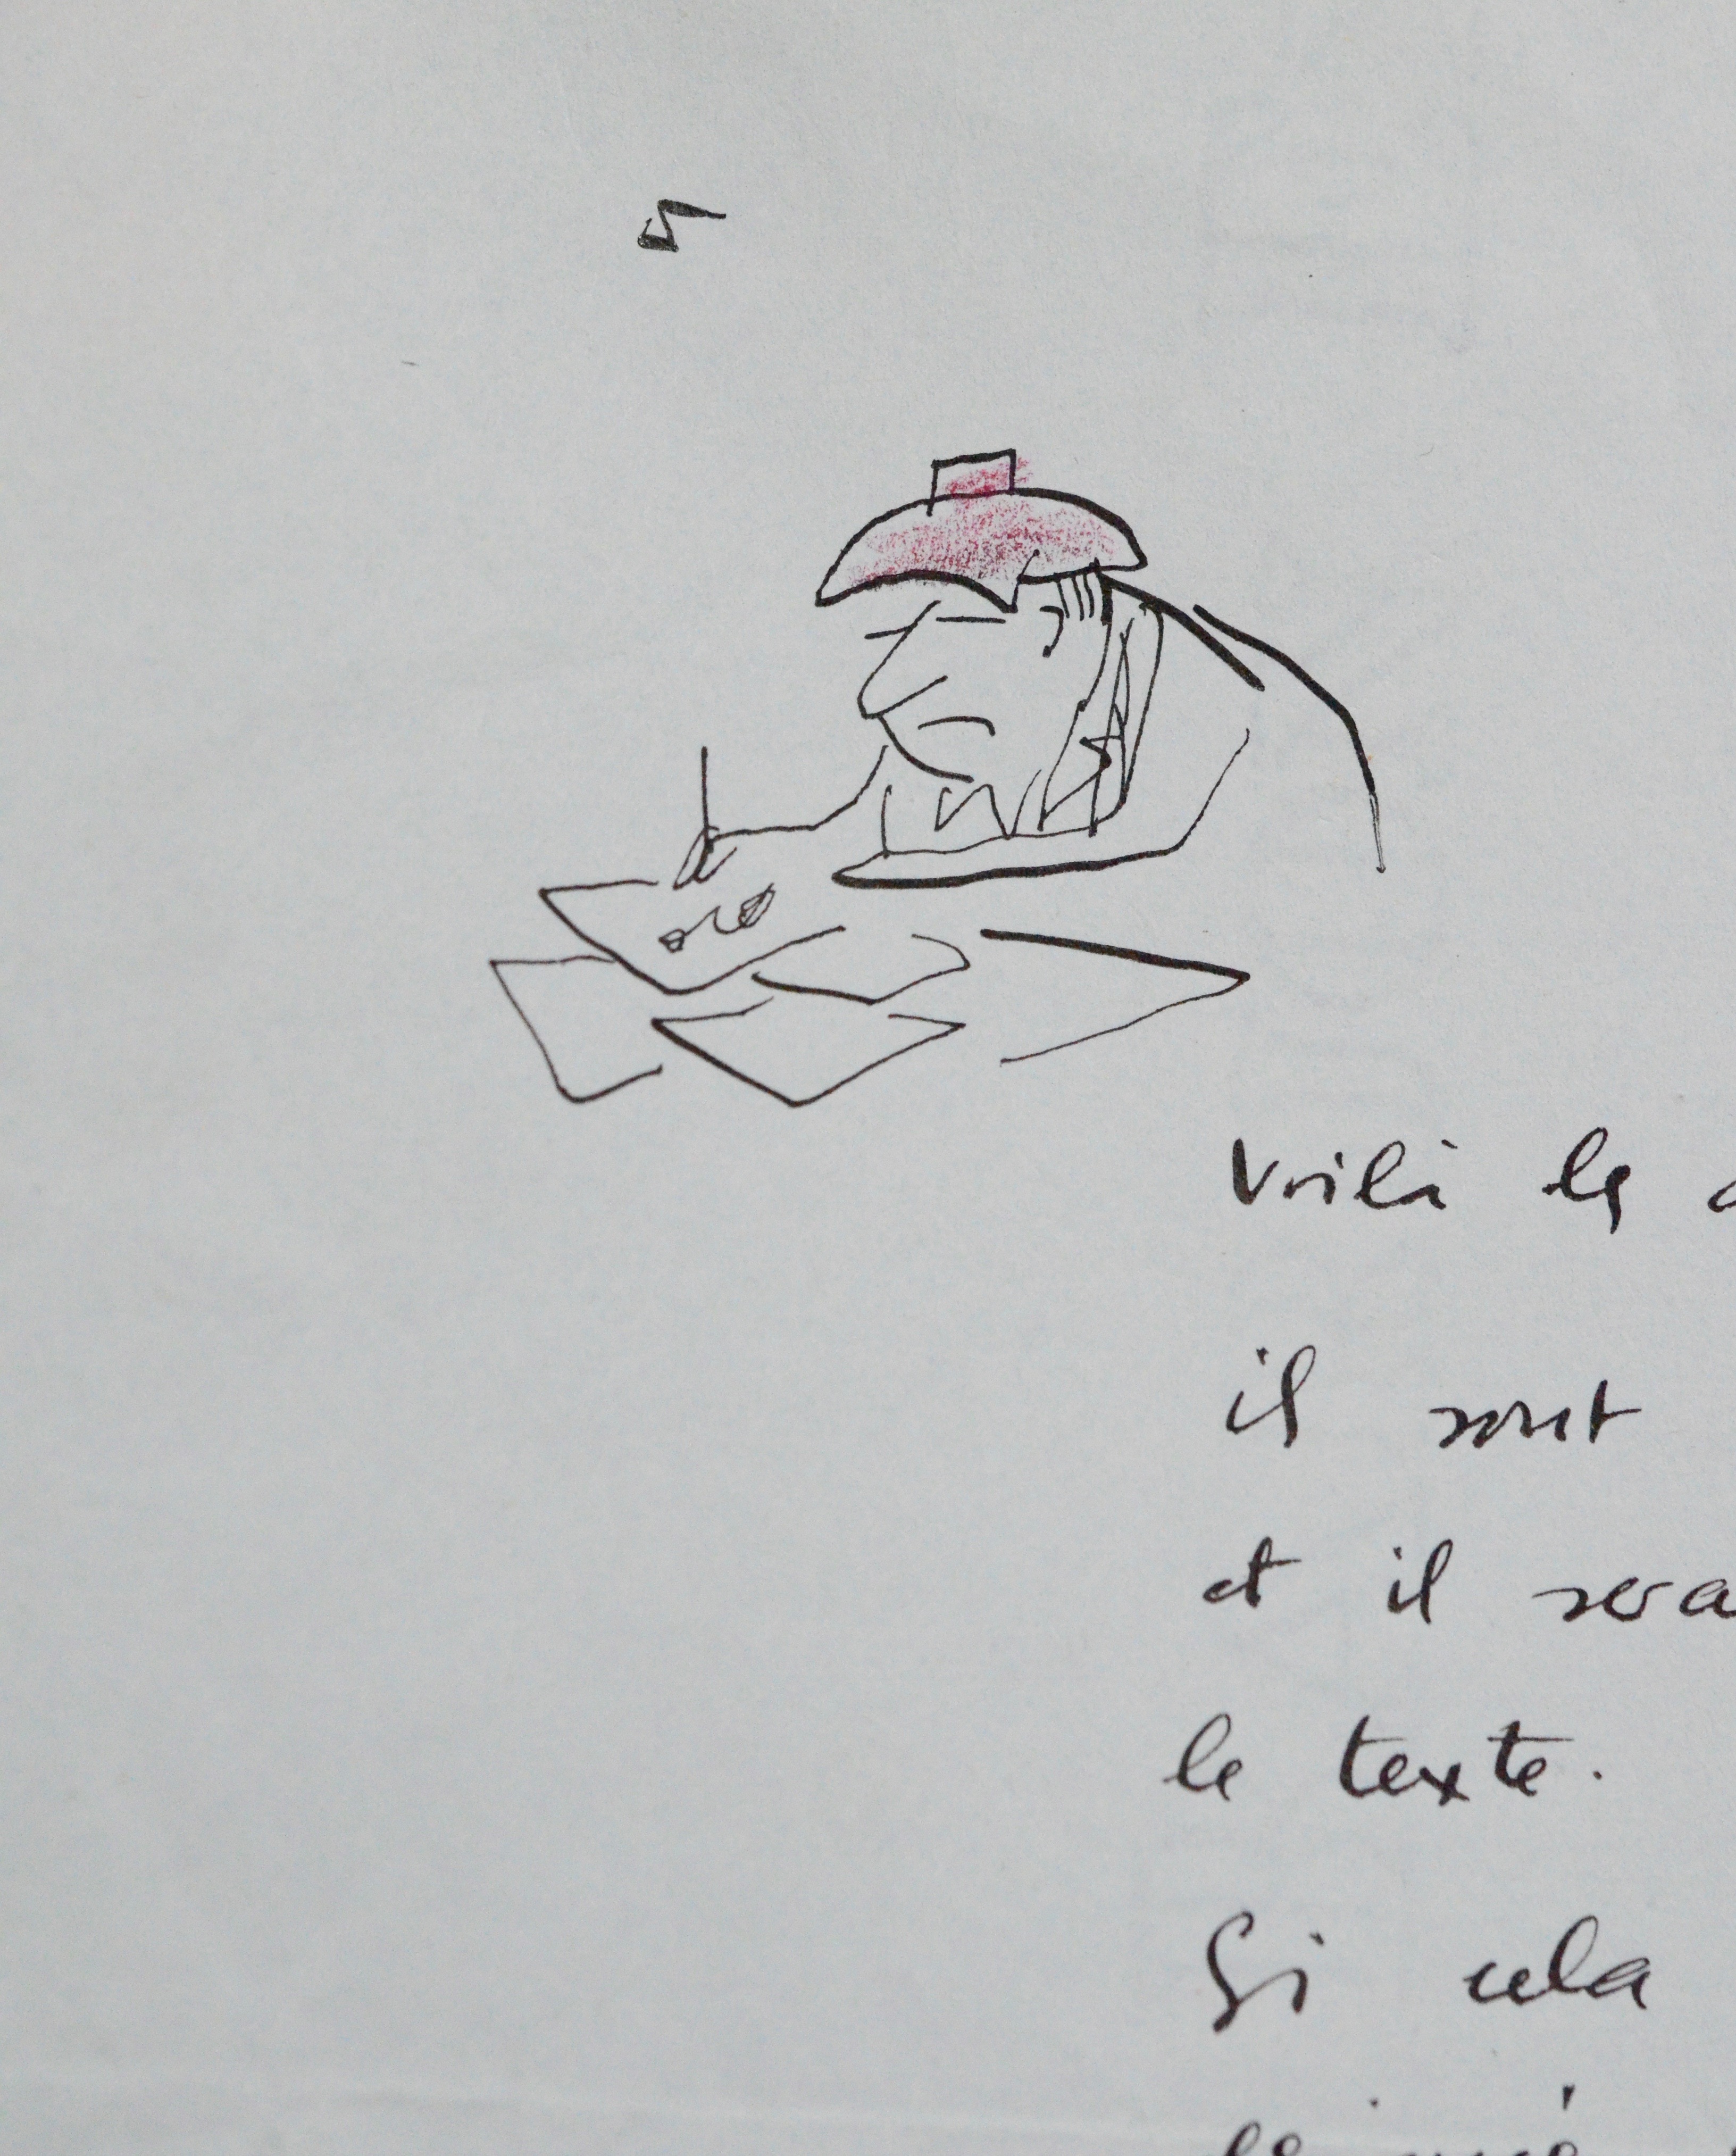 Voilà les
il sont
et il sera
le texte.
Si cela